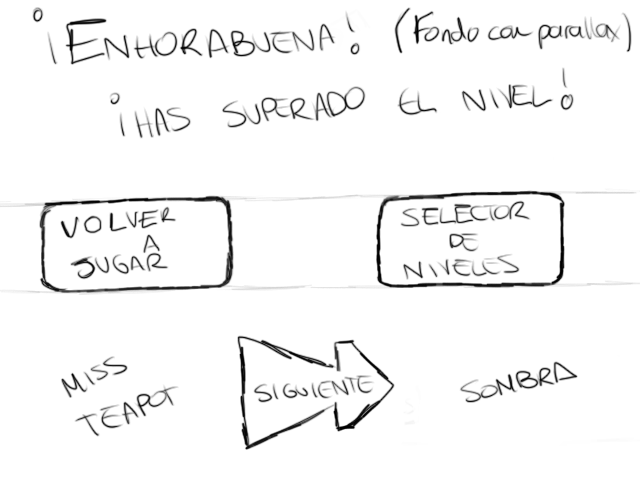 ¡ENHORABUENA! (Fondo con parallax)
¡HAS SUPERADO EL NIVEL!
VOLVER
A
JUGAR
SELECTOR
DE
NIVELES
MISS
TEAPOT
SIGUIENTE
SOMBRA